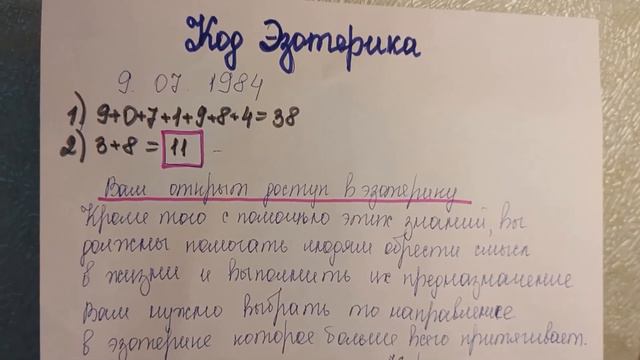 Код Эзотерика
9. 07. 1984
1) 9+0+7+1+9+8+4=38
2) 3+8 = 11
Вам открыт доступ в эзотерику
Кроме того с помощью этих знаний, вы
должны помогать людям обрести смысл
в жизни и выполнить их предназначение
Вам нужно выбрать то направление
в эзотерике которое больше всего притягивает.